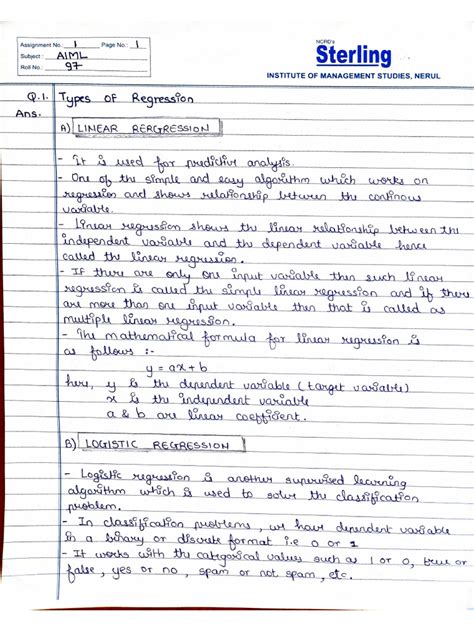 Assignment No. 1 Page No.: 1
Subject: AIML
Roll No.: 97
NCRD's
Sterling
INSTITUTE OF MANAGEMENT STUDIES, NERUL
Q.1. Types of Regression
Ans.
A) LINEAR RERGRESSION
- It is used for predictive analysis.
- One of the simple and easy algorithm which works on
regression and shows relationship between the continous
variable.
- Linear regression shows the linear relationship between the
independent variable and the dependent variable hence
called the linear regression.
- If there are only one input variable then such linear
regression is called the simple linear regression and if there
are more than one input variable then that is called as
multiple linear regression.
- The mathematical formula for linear regression is
as follows :-
y = ax + b
here, y is the dependent variable (target variable)
x is the independent variable
a & b are linear coefficient.
B) LOGISTIC REGRESSION
- Logistic regression is another supervised learning
algorithm which is used to solve the classification
problem.
- In classification problems, we have dependent variable
in a binary or discrete format i.e 0 or 1
- It works with the categorical values such as 1 or 0, true or
false, yes or no, spam or not spam, etc.